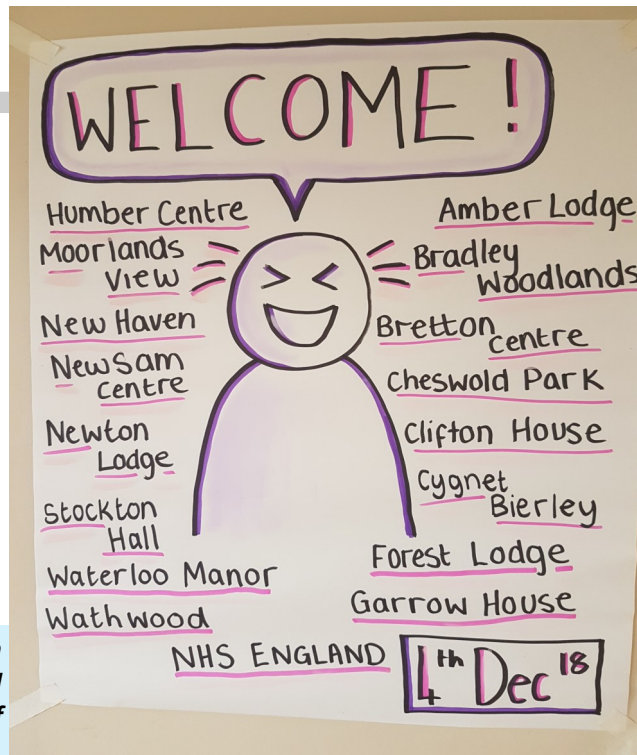 WELCOME!
Humber Centre
Moorlands
View
New Haven
Newsam
Centre
Newton
Lodge
Stockton
Hall
Waterloo Manor
Wathwood
Amber Lodge
Bradley
Woodlands
Bretton
Centre
Cheswold Park
Clifton House
Cygnet
Bierley
Forest Lodge
Garrow House
NHS ENGLAND
4th Dec 18